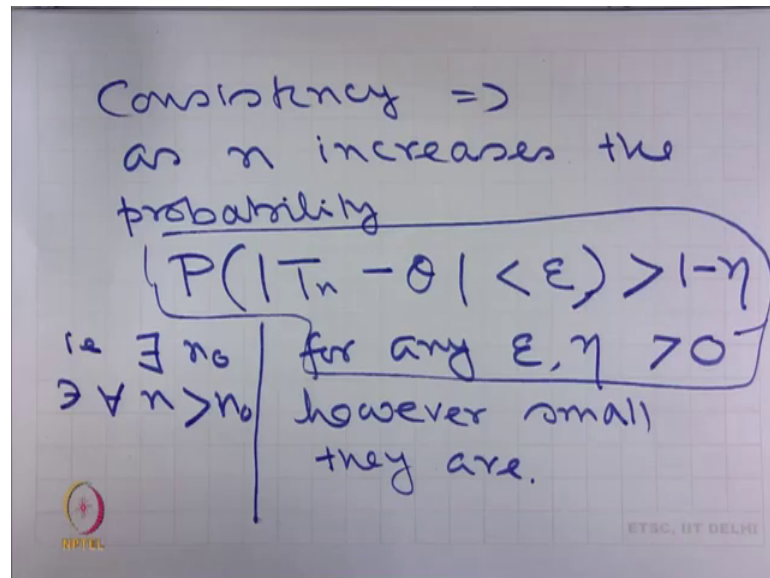 Consistency =>
as n increases the
probability
P(|Tn - θ| < ε) > 1-η
ie ∃ n₀ | for any ε, η > 0
∋ ∀ n > n₀ | however small
they are.
NPTEL
ETSC, IIT DELHI